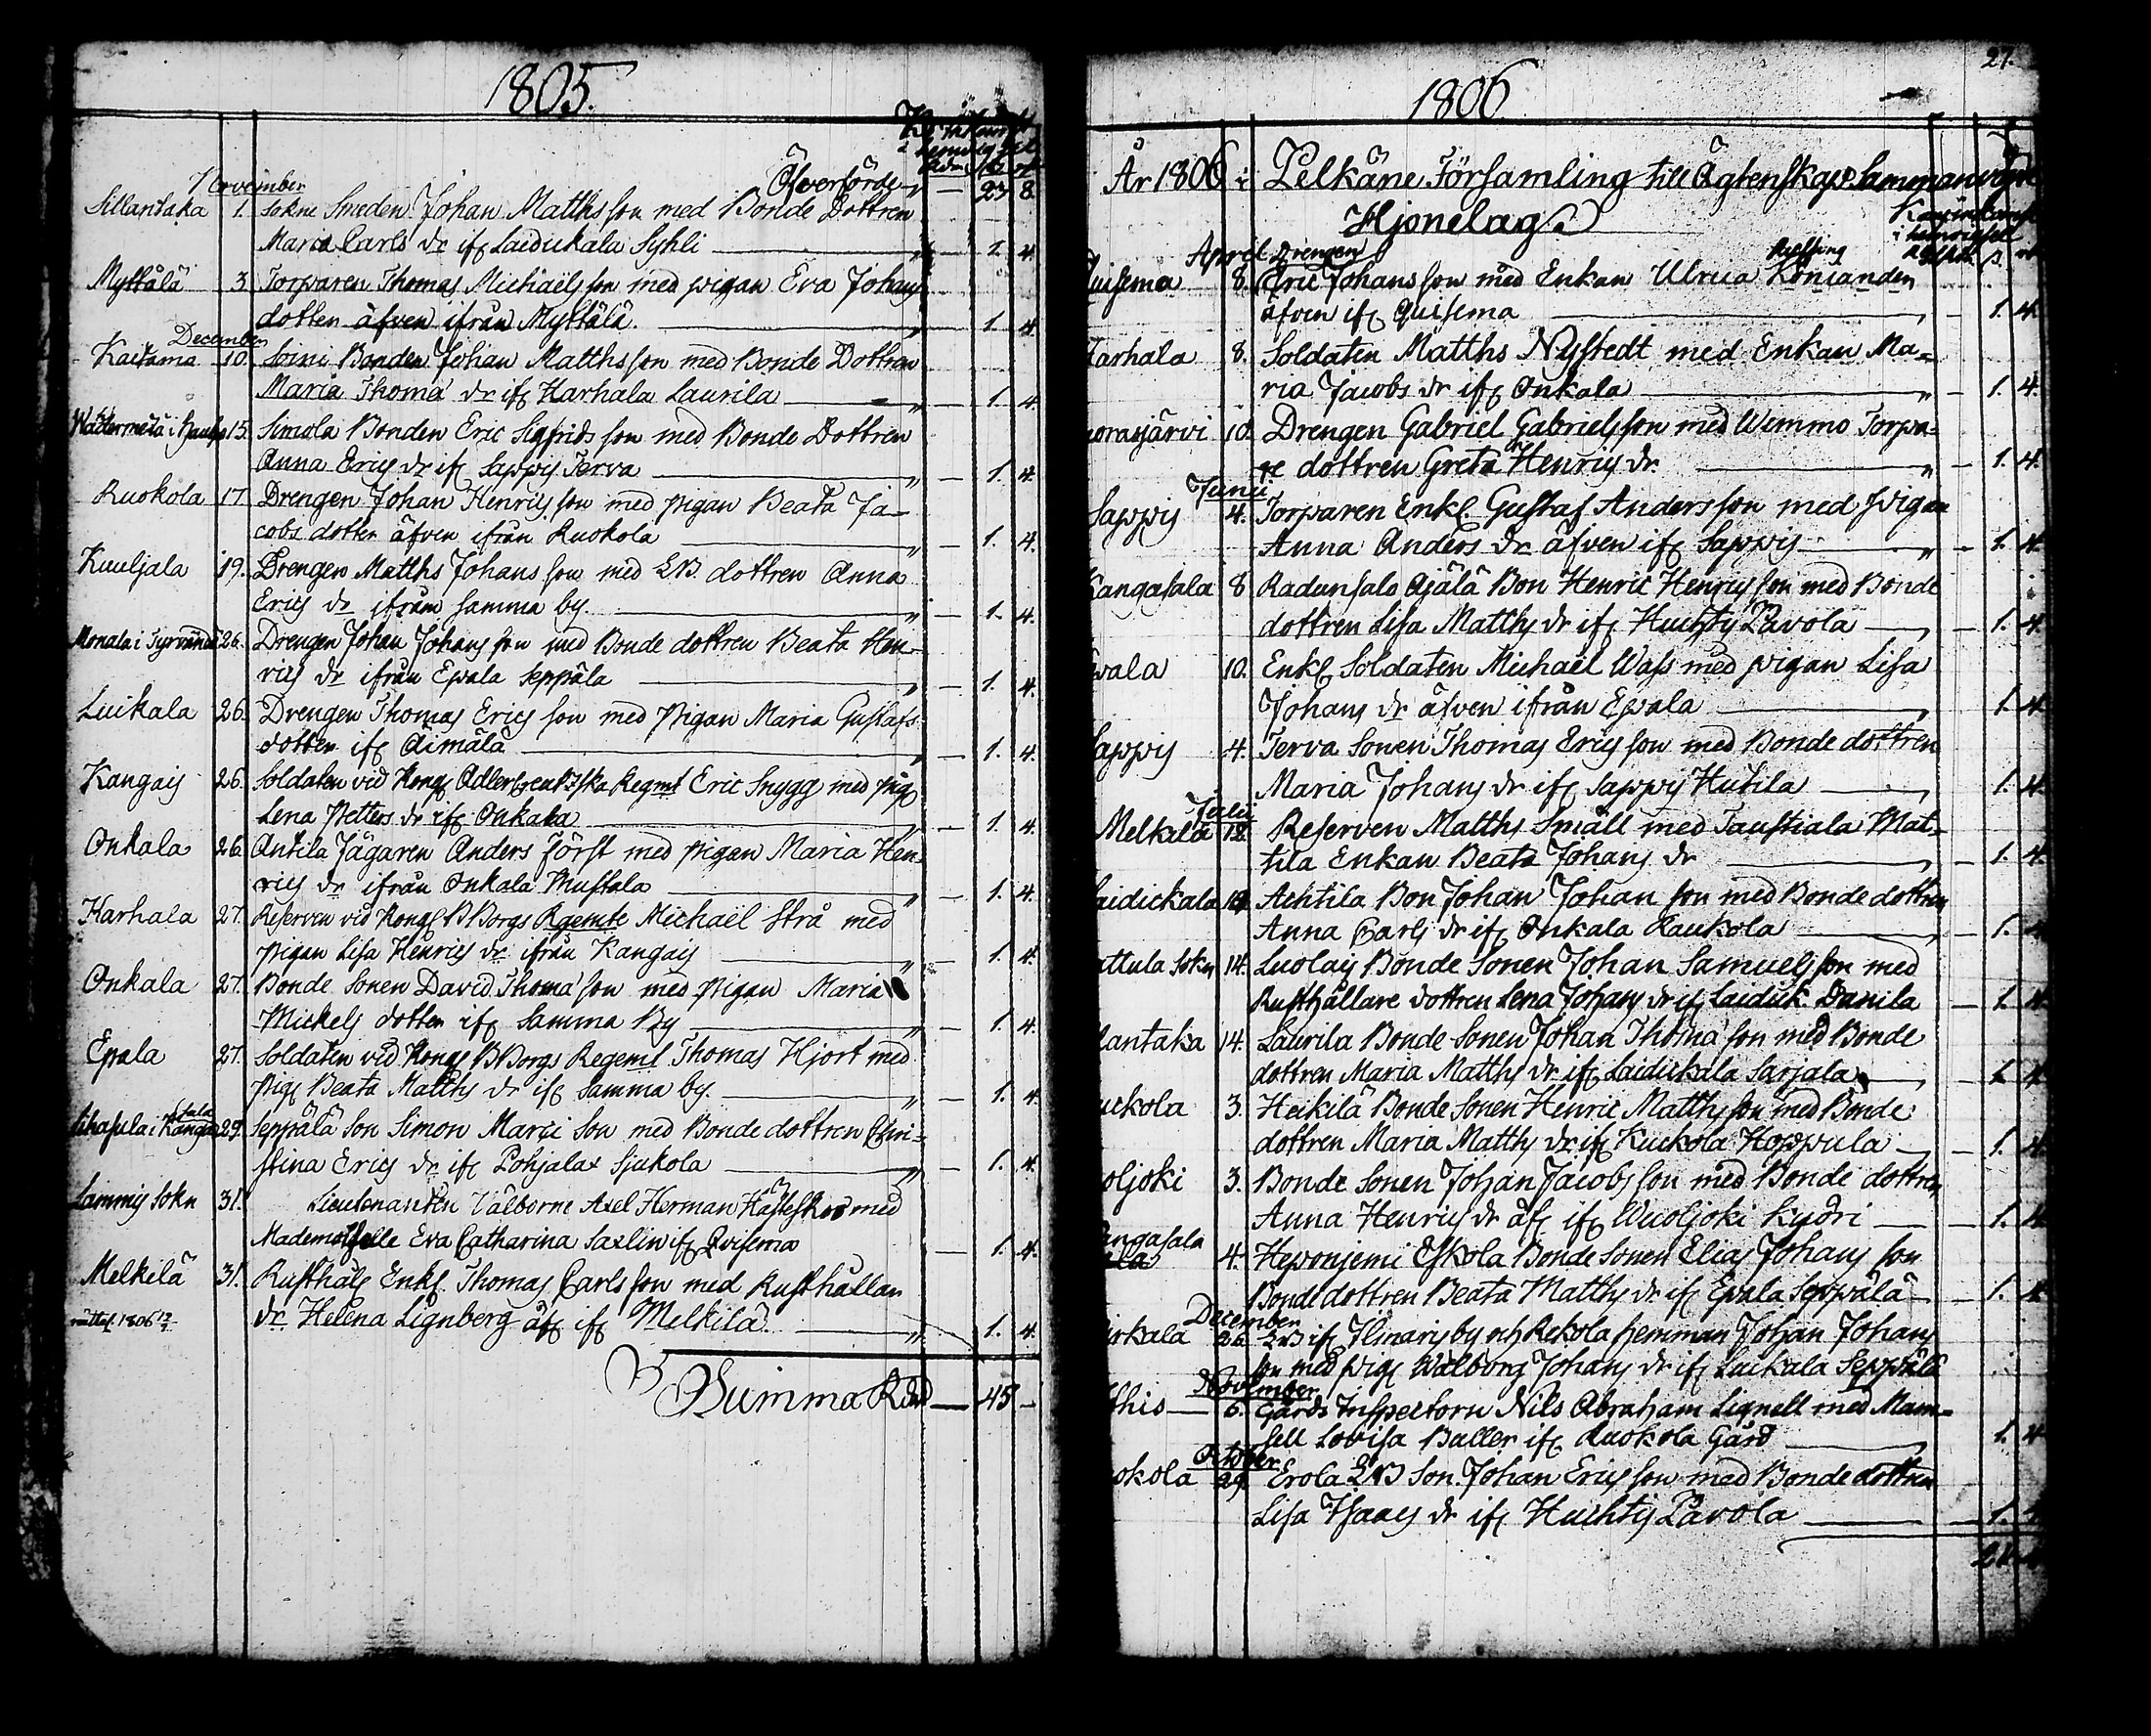 1805.
Öfverförde " — 23 8
November
Sillantaka 1. Sokne Smeden Johan Matthsson med Bonde Dottren
Maria Carls dr ifr Laidickala Syhli " — 1. 4
Myttälä 3. Torparen Thomas Michaëlsson med pigan Eva Johans
dotter äfven ifrån Myttälä. " 1. 4
December
Kaitama 10. Soini Bonden Johan Matthsson med Bonde Dottren
Maria Thomæ dr ifr Harhala Laurila " — 1. 4
15. Simola Bonden Eric Sigfridsson med Bonde Dottren
Anna Erics dr ifr Sappis Terva " — 1. 4
Ruokola 17. Drengen Johan Henricsson med pigan Beata Ja-
cobs dotter äfven ifrån Ruokola " — 1. 4.
Kuuljala 19. Drengen Matths Johansson med LB. dottren Anna
Erics dr ifrån samma by. " — 1. 4.
Monala i Tyrvändö 26. Drengen Johan Johansson med Bonde dottren Beata Hen-
rics dr ifrån Epala Seppälä " — 1. 4.
Luikala 26. Drengen Thomas Ericsson med pigan Maria Gustafs
dotter ifr Äimälä " 1. 4
Kangais 26. Soldaten vid Kongl Adlercreutzska Regmt Eric Snygg med pig
Lena Petters dr ifr Onkala " — 1. 4
Onkala 26. Antila Jägaren Anders Först med pigan Maria Hen-
rics dr ifrån Onkala Mustala " — 1. 4.
Harhala 27. Reserven vid Kongl BBorgs Regemte Michaël Strå med
pigan Lisa Henrics dr ifrån Kangais " — 1. 4.
Onkala 27. Bonde Sonen David Thomæ son med pigan Maria
Mickels dotter ifr samma By " — 1. 4.
Epala 27. Soldaten vid Kongl BBorgs Regemt Thomas Hjort med
pig Beata Matths dr ifr samma by. " — 1. 4
sala
i Kanga 29. Seppälä Son Simon Marci Son med Bonde dottren Chri-
stina Erics dr ifr Pohjalax Sjukola " — 1. 4.
Lammis Sokn 31. Lieutenanten Välborne Axel Herman Hästesko med
Mademoiselle Eva Catharina Saxlin ifr Qvisema — 1. 4.
Melkilä 31. Rusthåll Enkl. Thomas Carlsson med Rusthållar
1806 dr. Helena Lignberg äfv ifr Melkilä. " 1. 4.
Summa Rd — 45 —
27.
1806.
År 1806 i Pelkäne Församling till Ägtenskap Sammanvigde
Hjonelag.
April Drengen
Quisema 8. Eric Johansson med Enkan Ulrica Konianden
äfven ifr Quisema — 1. 4.
Harhala 8. Soldaten Matths Nystedt med Enkan Ma-
ria Jacobs dr ifr Onkala " — 1. 4.
orasjärvi 10. Drengen Gabriel Gabrielsson med Wemmo Torpa-
re dottren Greta Henrics dr. " — 1. 4.
Junii
Sappis 4. Torparen Enkl. Gustaf Andersson med pigan
Anna Anders dr äfven ifr Sappis " — 1. 4.
Kangasala 8 Radunsalo Äjälä Bon Henric Henricsson med Bonde
dottren Lisa Matths dr ifr Huchtis Pavola — 1. 4.
pala 10. Enkl Soldaten Michaël Wass med pigan Lisa
Johans dr äfven ifrån Epala — 1. 4
Sappis 4. Terva Sonen Thomas Ericsson med Bonde dottren
Maria Johans dr ifr Sappis Hutila 1. 4.
Julii
Melkilä 12. Reserven Matths Smäll med Taustiala Mat-
tila Enkan Beata Johans dr — 1. 4.
aidickala Achtila Bon Johan Johan son med Bonde dottren
Anna Carls dr ifr Onkala Raukola — 1. 4
attula Sokn 14. Luolais Bonde Sonen Johan Samuelsson med
Rusthållare dottren Lena Johans dr ifr Laidick. Danila — 1. 4.
lantaka 14. Laurila Bonde Sonen Johan Thomæ son med Bonde
dottren Maria Matths dr. ifr Laidickala Sarjala — 1 4.
uckola 3. Heikilä Bonde Sonen Henric Matthsson med Bonde
dottren Maria Matths dr. ifr Kuckola Hoppula — 1. 4.
oljoki 3. Bonde Sonen Johan Jacobsson med Bonde dottren
Anna Henrics dr äfv ifr Wuoljoki Kyöri — 1. 4
ngasala
4. Heponjemi Eskola Bonde Sonen Elias Johans son
Bonde dottren Beata Matths dr ifr Epala Seppälä — 1. 4
December
ukala 26. LB ifr Ilmaris by och Rekola hemman Johan Johans
son med pig Walborg Johans dr ifr Luikala Seppälä
November
this — 6. Gårds Inspectorn Nils Abraham Lignell med Mam-
sell Lovisa Baller ifr Ruokola Gård 1. 4
October
okola 29. Erola LB Son Johan Ericsson med Bonde dottren
Lisa Isaacs dr ifr Huchtis Pavola 1. 4